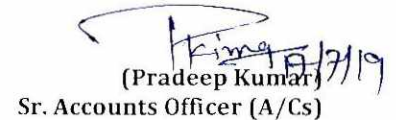 17/7/19
(Pradeep Kumar)
Sr. Accounts Officer (A/Cs)